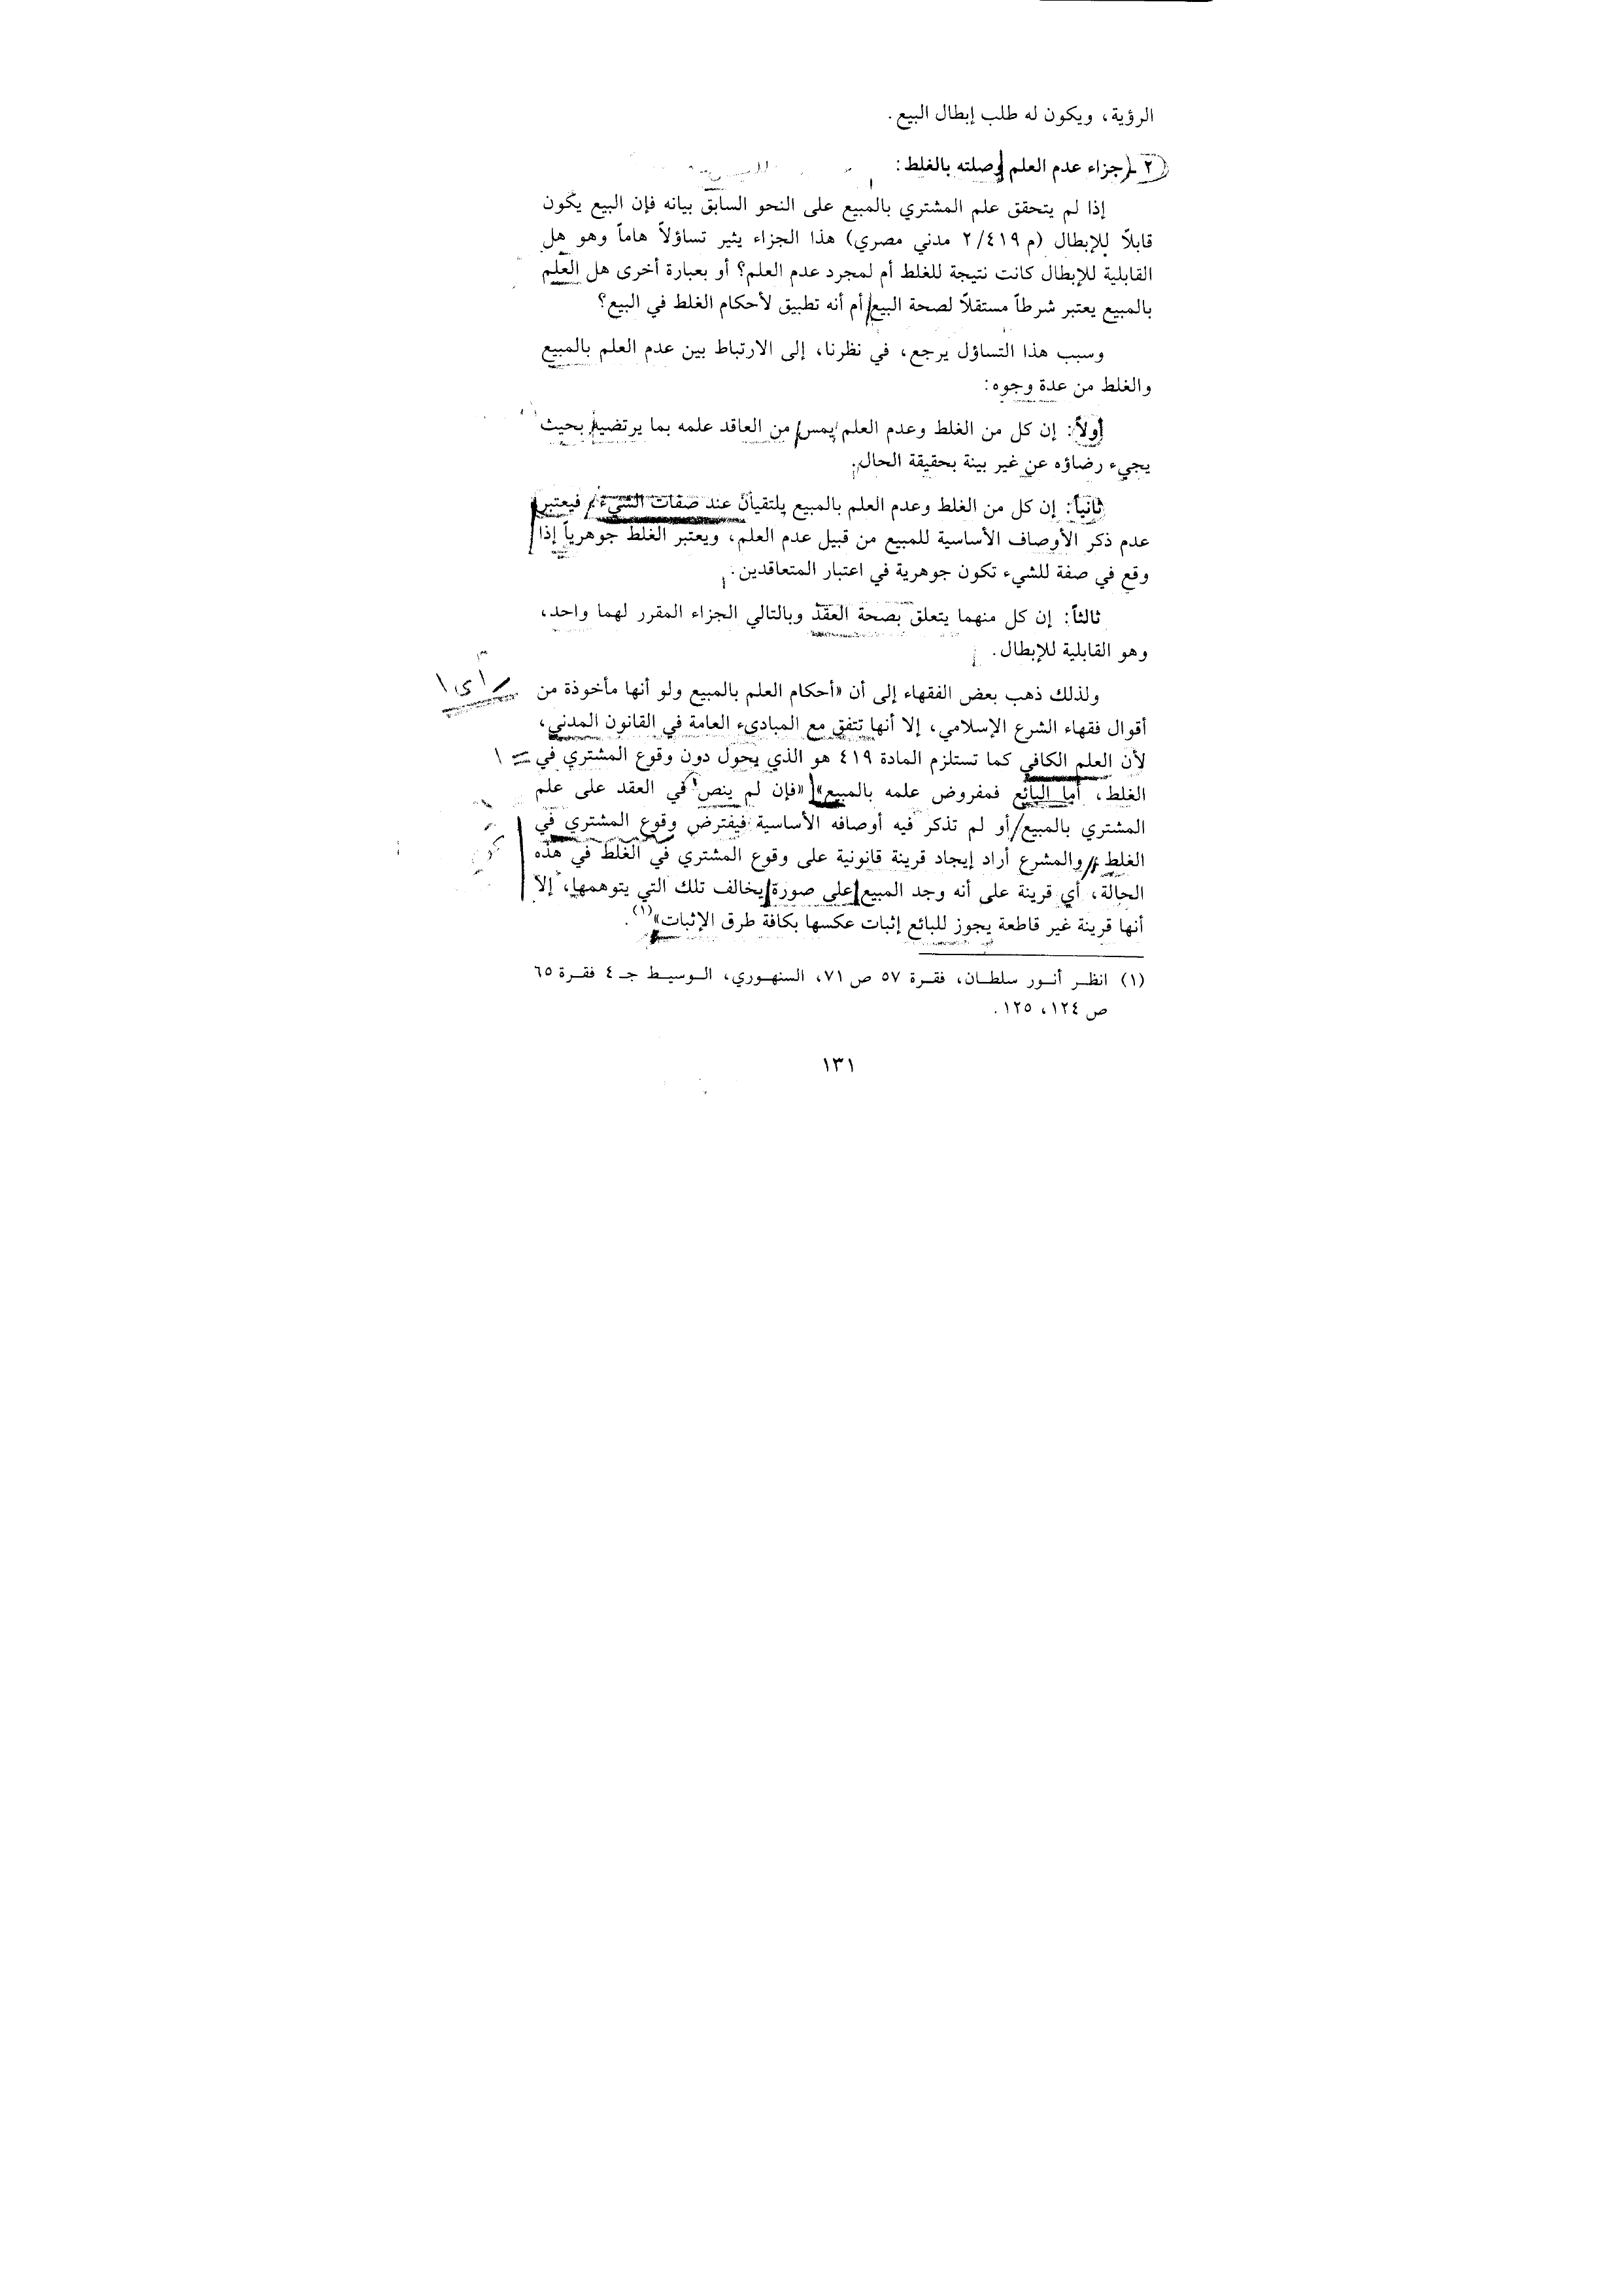 الرؤية، ويكون له طلب إبطال البيع.
٢ - جزاء عدم العلم وصلته بالغلط:
إذا لم يتحقق علم المشتري بالمبيع على النحو السابق بيانه فإن البيع يكون
قابلاً للإبطال (م ٢/٤١٩ مدني مصري) هذا الجزاء يثير تساؤلاً هاماً وهو هل
القابلية للإبطال كانت نتيجة للغلط أم لمجرد عدم العلم؟ أو بعبارة أخرى هل العلم
بالمبيع يعتبر شرطاً مستقلاً لصحة البيع أم أنه تطبيق لأحكام الغلط في البيع؟
وسبب هذا التساؤل يرجع، في نظرنا، إلى الارتباط بين عدم العلم بالمبيع
والغلط من عدة وجوه:
أولاً: إن كل من الغلط وعدم العلم يمس من العاقد علمه بما يرتضيه بحيث
يجيء رضاؤه عن غير بينة بحقيقة الحال.
ثانياً: إن كل من الغلط وعدم العلم بالمبيع يلتقيان عند صفات الشيء، فيعتبر
عدم ذكر الأوصاف الأساسية للمبيع من قبيل عدم العلم، ويعتبر الغلط جوهرياً إذا
وقع في صفة للشيء تكون جوهرية في اعتبار المتعاقدين.
ثالثاً: إن كل منهما يتعلق بصحة العقد وبالتالي الجزاء المقرر لهما واحد،
وهو القابلية للإبطال.
ولذلك ذهب بعض الفقهاء إلى أن «أحكام العلم بالمبيع ولو أنها مأخوذة من
أقوال فقهاء الشرع الإسلامي، إلا أنها تتفق مع المبادىء العامة في القانون المدني،
لأن العلم الكافي كما تستلزم المادة ٤١٩ هو الذي يحول دون وقوع المشتري في
الغلط، أما البائع فمفروض علمه بالمبيع» «فإن لم ينص في العقد على علم
المشتري بالمبيع أو لم تذكر فيه أوصافه الأساسية فيفترض وقوع المشتري في
الغلط، والمشرع أراد إيجاد قرينة قانونية على وقوع المشتري في الغلط في هذه
الحالة، أي قرينة على أنه وجد المبيع على صورة يخالف تلك التي يتوهمها، إلا
أنها قرينة غير قاطعة يجوز للبائع إثبات عكسها بكافة طرق الإثبات»(١).
(١) انظر أنور سلطان، فقرة ٥٧ ص ٧١، السنهوري، الوسيط جـ ٤ فقرة ٦٥
ص ١٢٤، ١٢٥.
١٣١